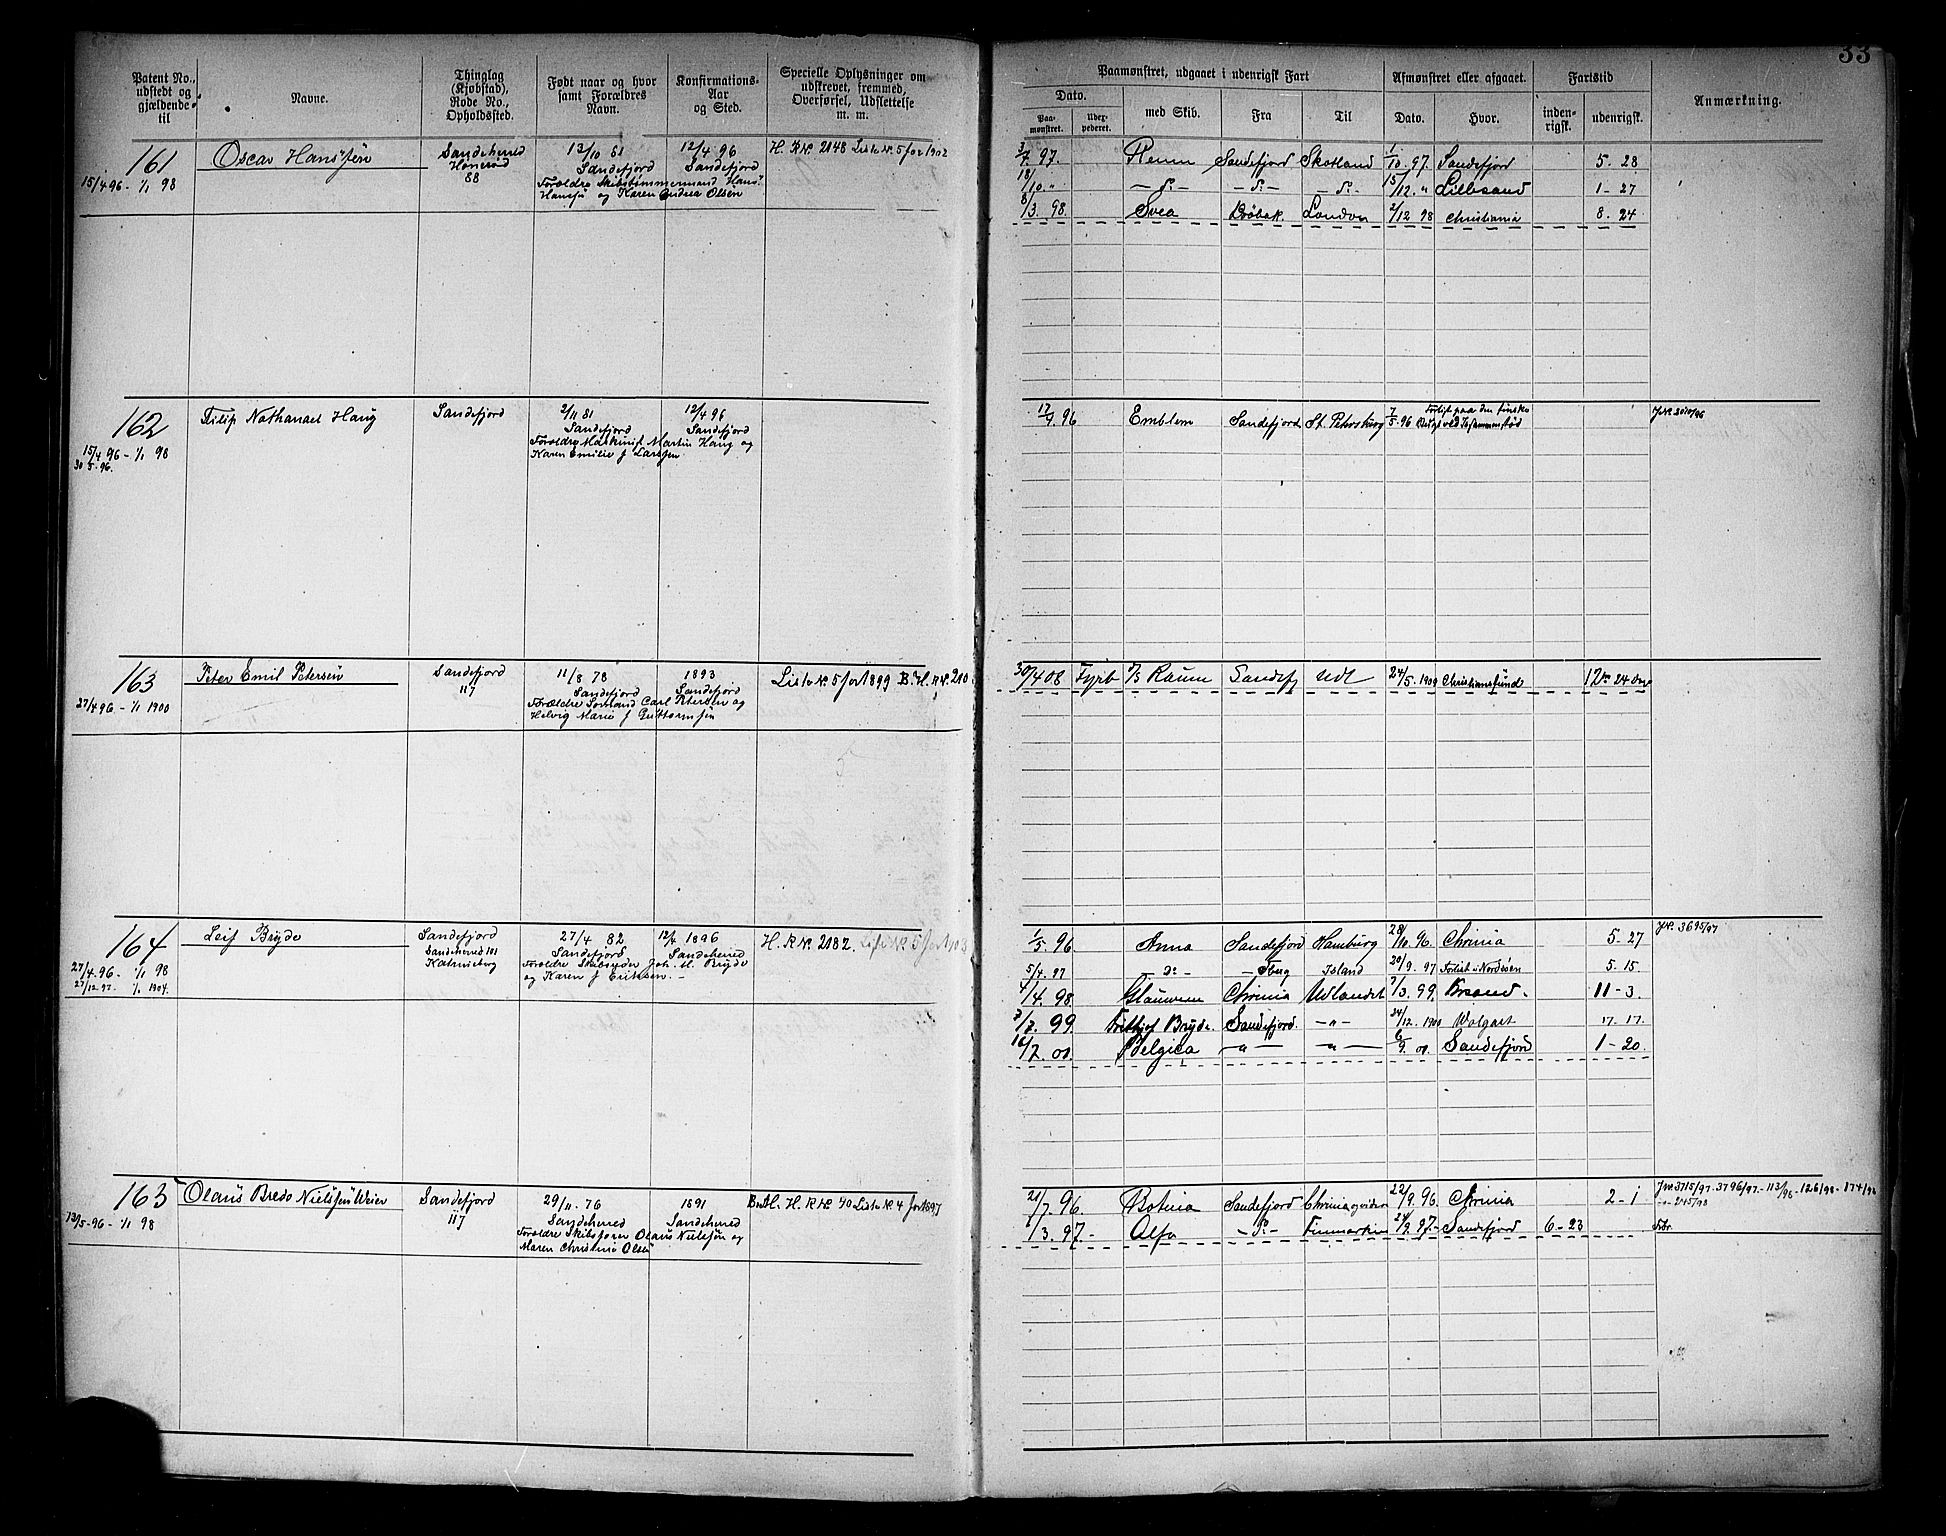 33
Patent No., udstedt og gjældende til
Navne.
Thinglag (Kjøbstad), Rode No., Opholdssted.
Født naar og hvor samt Forældres Navn.
Konfirmations-Aar og Sted.
Specielle Oplysninger om udskrevet, fremmed, Overførsel, Udslettelse m. m.
Paamønstret, udgaaet i udenrigsk Fart
Afmønstret eller afgaaet.
Fartstid
Anmærkning.
Dato.
Paa-mønstret.
Udex-pederet.
med Skib.
Fra
Til
Dato.
Hvor.
inden-rigsk.
udenrigsk.
161
15/4 96 - 1/1 98
Oscar Hansen
Sandeherred
88
13/10 81
Sandefjord
Forældre Skibstømmermand Hans
Hansen og Karen Andrea Olsen
12/4 96
Sandefjord
H. R. Nr. 2148 Liste Nr. 5 for 1902
3/7 97. Sandefjord Skotland 1/10 97. Sandefjord 5 - 28
18/10 " - Do - - Do - - Do - 15/12 " Lillesand 1 - 27
8/3. 98. Svea Drøbak London 2/12 98 Christiania 8. 24
162
15/4 96 - 1/1 98
30/5 96.
Filip Nathanael Haug
Sandefjord
2/11 81
Sandefjord
Forældre Maskinist Martin Haug og
Karen Emilie f Larssen
12/4 96
Sandefjord
17/4 96 Emblem Sandefjord St. Petersburg 7/5 96 Forlist paa den finske
163
27/4 96 - 1/1 1900
Peter Emil Petersen
Sandefjord
117
11/8 78
Sandefjord
Forældre Sømand Carl Petersen og
Helvig Marie f Guttormsen
1893
Sandefjord
Liste Nr. 5 for 1899 B. H. R. Nr. 210
30/4 08 Fyrb Sandefj Udl 24/5. 1909 Christianssund 24 Dage
164
27/4. 96 - 1/1 98
27/12 97. 1/1 1904.
Leif Bryde
Sandefjord
Sandeherred 101
27/4 82
Sandefjord
Forældre Skibsreder Joh. M. Bryde
og Karen f Eriksen. -
12/4 1896
Sandeherred
H. R. Nr. 2182. Liste Nr. 5 for 1903
1/5. 96 Anna Sandefjord Hamburg 28/10. 96. Chrinia 5 - 27
J. N. 3695/97
5/4. 97 - Do - Island 20/9. 97 Forlist i Nordsøen 5. 15.
4/4. 98. Chrinia Udlandet 7/3. 99. 11 - 3.
99. Fritkjof Bryde. Sandefjord. - " - 24/12. 1900 Wolgast 17. 17.
00. Belgica - " - - " - 6/9. 00. Sandefjord 1 - 20.
165
13/5. 96 - 1/1 98
Olaus Bredo Nielsen Weier
Sandefjord
117
29/11. 76
Sandeherred
Forældre Olaus Nielsen og
Maren Christine Olsen
1891
Sandeherred
H. R. Nr. 40 Liste Nr. 4 for 1897
21/7. 96. Botnia Sandefjord Chrinia og videre 22/9. 96. Chrinia 2 - 1
J. N. 3715/97. 3796/97. - 113/98. - 126/98 - 174/98
- " - 245/98
1/3. 97. - Alfa - Do - Finmarken 97. - Sandefjord 6 - 23